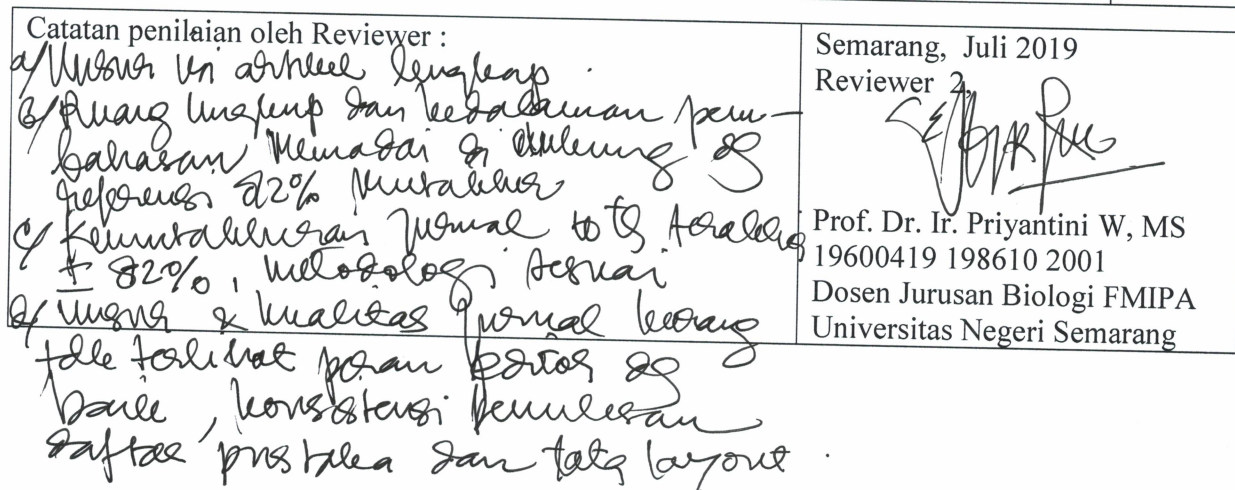 Catatan penilaian oleh Reviewer :
a/ Unsur isi artikel lengkap .
b/ Ruang lingkup dan kedalaman pem-
bahasan memadai di dukung dg
referensi 82% mutakhir
c/ Kemutakhiran jurnal 10 th terakhir
± 82%, metodologi sesuai
d/ Unsur & kualitas jurnal kurang
tdk terlihat peran editor dg
baik, konsistensi penulisan
daftar pustaka dan tata layout .
Semarang, Juli 2019
Reviewer 2,
Prof. Dr. Ir. Priyantini W, MS
19600419 198610 2001
Dosen Jurusan Biologi FMIPA
Universitas Negeri Semarang